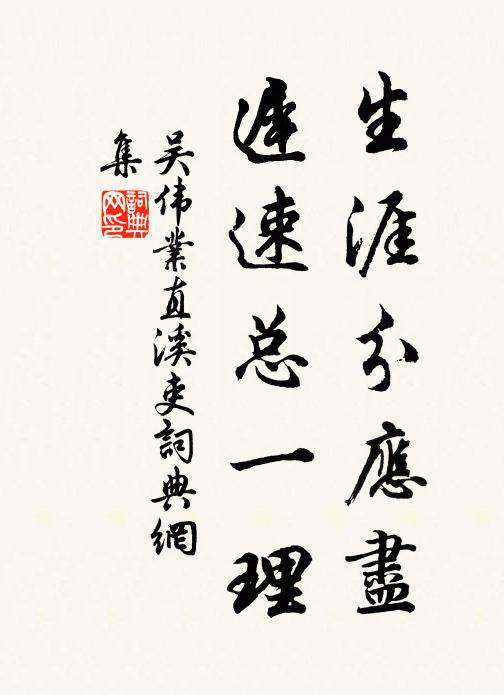 生涯分應盡
遲速总一理
吴伟業直溪吏詞典網
集
詞典
网印